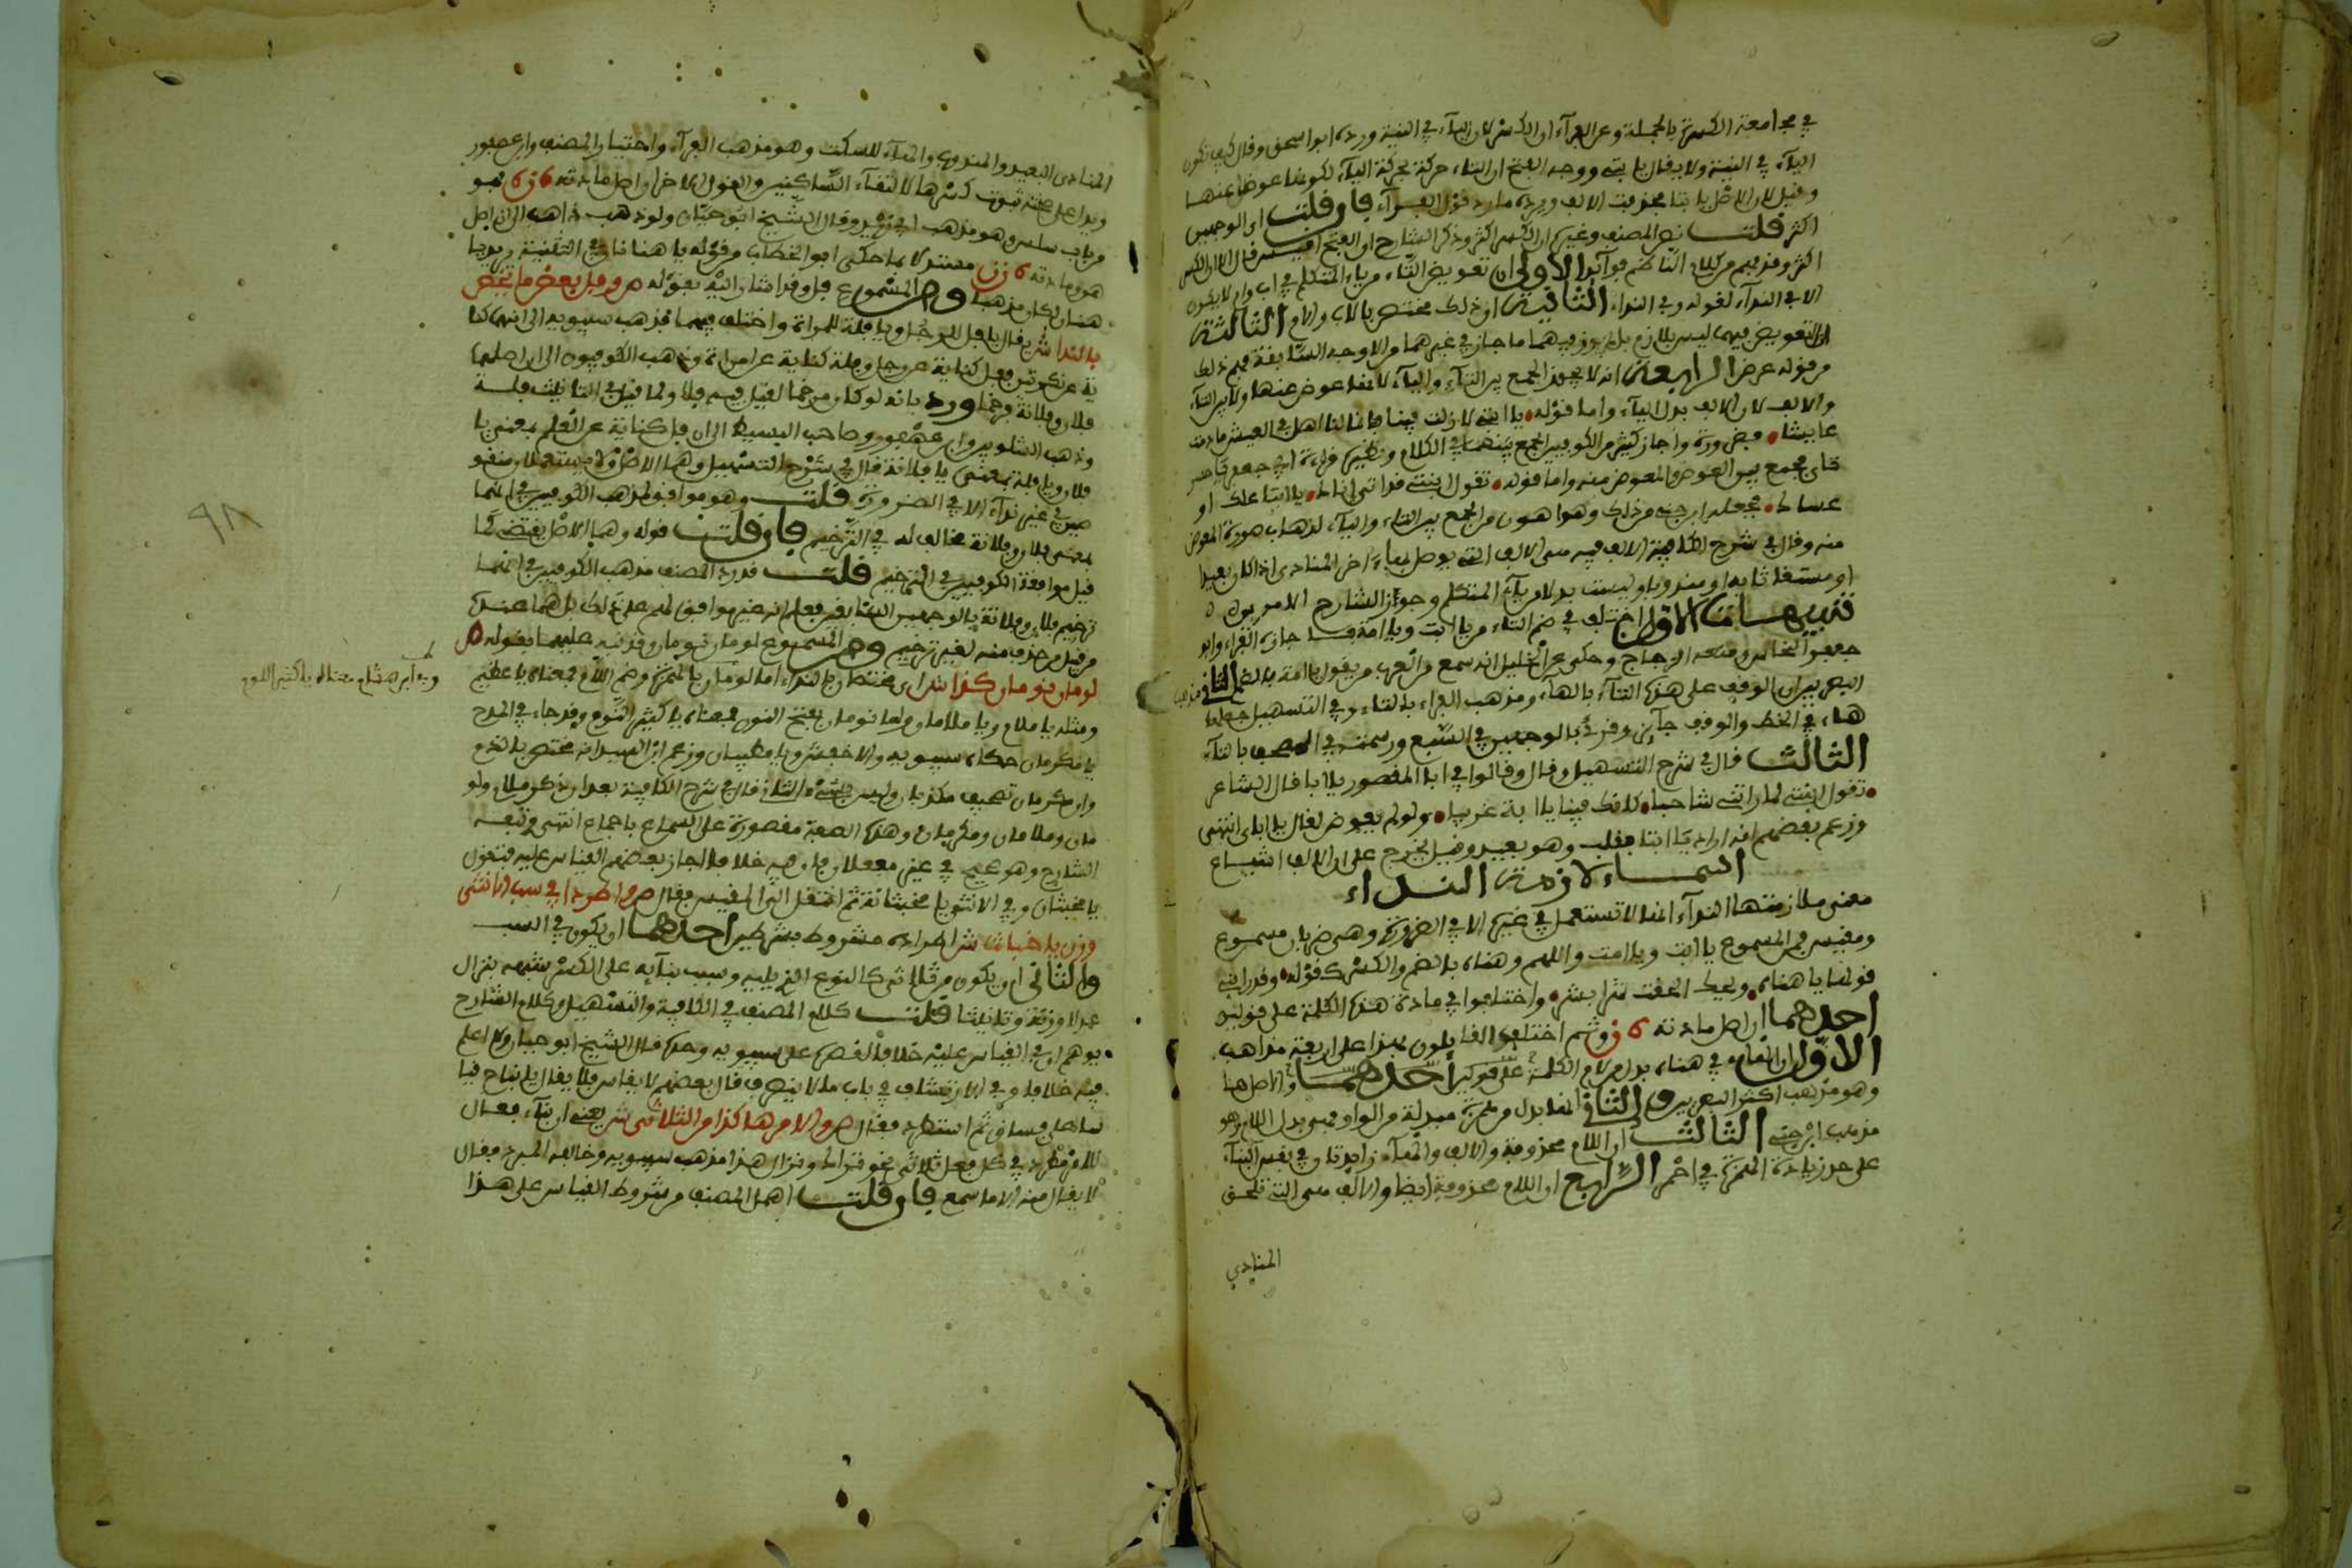 في مجامعة الكسرة بالجملة وعن الفرآء ان الكسر لان اليآء في النية ورده ابو اسحق وقال كيف تكون
اليآء في النية ولا يقال يا يتي ووجه الفتح ان التاء حركت بحركة اليآء لكونها عوضا عنها
وقيل لان الاصل يا بتا فحذفت الالف ورده ما رد قول الفرآء فان قلت اي الوجهين
اكثر قلت نص المصنف وغيره ان الكسر اكثر وذكر الشارح ان الفتح اقيس قال الا ان الكسر
اكثر وقد فهم من كلام الناظم فوآئد الاولى ان تعويض التاء من ياء المتكلم في اب وام لا يكون
الا في الندآء لقوله وفي الندا الثانية ان ذلك مختص بالاب والام الثالثة
ان التعويض فيهما ليس بلازم بل يجوز فيهما ما جاز في غيرهما من الاوجه السابقة فهم ذلك
من قوله عرض الرابعة انه لا يجوز الجمع بين التآء واليآء لانها عوض عنها ولا بين التآء
والالف لان الالف بدل اليآء واما قوله يا ابتي لا زلت فينا فانما لنا امل في العيش ما دمت
عايشا فضرورة واجاز كثير من الكوفيين الجمع بينهما في الكلام ونظيره قراءة ابي جعفر يا حسر
تاي فجمع بين العوض والمعوض منه واما قوله تقول بنتي قد اتى اناكا يا ابتا علك او
عساكا فجعله ابن جني من ذلك وهو اهون من الجمع بين التاء واليآء لذهاب صورة المعوض
منه وقال في شرح الكافية الالف فيه هي الالف التي يوصل بها اخر المنادى اذا كان بعيدا
او مستغاثا به او مندوبا وليست بدلا من يآء المتكلم وجوز الشارح الامرين
تنبيهات الاول اختلف في ضم التاء من يا ابت ويا امت فاجازه الفراء وابو
جعفر النحاس ومنعه الزجاج وحكي عن الخليل انه سمع من العرب من يقول يا امة بالضم الثاني مذهب
البصريين ان الوقف على هذه التآء بالهآء ومذهب الفراء بالتاء وفي التسهيل جعلها
هاء في الخط والوقف جآئز وقد قرئ بالوجهين في السبع ورسمت في المصحف بالتآء
الثالث قال في شرح التسهيل وقال وقالوا في ابا المقصور يا ابا قال الشاعر
تقول ابنتي لما راتني شاحبا كانك فينا يا ابات غريب ولو لم يعوض لقال يا اباي انتهى
وزعم بعضهم انه اراد يا ابتا فقلب وهو بعيد وقيل يخرج على ان الالف اشباع
اسماء لازمت النداء
معنى ملازمتها الندآء انها لا تستعمل في غيره الا في الضرورة وهي ضربان مسموع
ومقيس فمن المسموع يا ابت ويا امت واللهم وهناه بالضم والكسر كقوله وقد رابني
قولها يا هناه ويحك الحقت شرا بشر واختلفوا في مادة هذه الكلمة على قولين
احدهما ان اصل مادته ه ن و ثم اختلف القايلون بهذا على اربعة مذاهب
الاول ان الهآء في هناه بدل من لام الكلمة على قولين احدهما والاصل هنا
وهو مذهب اكثر البصريين والثاني انها بدل من همزة مبدلة من الواو فهي بدل البدل وهو
مذهب ابن جني الثالث ان اللام محذوفة والالف والهآء زايدتان في نفس البنآء
على حد زيادة الهمزة في احمر الرابع ان اللام محذوفة ايضا والالف هي التي تلحق
المنادى
المنادى البعيد والمندوب والهآء للسكت وهو مذهب الفرآء واختيار المصنف وابن عصفور
ويدل على صحته ثبوت كسرها لالتقآء الساكنين والقول الاخر ان اصل مادته ه ن ه فهو
من باب سلس وهو مذهب ابي زيد وقال الشيخ ابو حيان ولو ذهب ذاهب الى ان اصل
هن ومادته ه ن ن مستدلا بما حكى ابو الخطاب من قوله يا هنانان في التثنية يريد يا
هنان لكان مذهبا ومن المسموع فل وقد اشار اليه بقوله ص وفل بعض ما يخص
بالندا ش يقال يا فل للرجل ويا فلة للمراة واختلف فيهما فذهب سيبويه الى انهما كنا
ية عن نكرتين ففل كناية عن رجل وفلة كناية عن امراة وذهب الكوفيون الى ان اصلهما
فلان وفلانة فرخما ورد بانه لو كان مرخما لقيل فيه فلا ولما قيل في التانيث فلة
وذهب الشلوبين وابن عصفور وصاحب البسيط الى ان فل كناية عن العلم بمعنى يا
فلان ويا فلة بمعنى يا فلانة قال في شرح التسهيل وهما الاصل ولا يستعملان منقو
صين في غير ندآء الا في الضرورة قلت وهو موافق لمذهب الكوفيين في انهما
بمعنى فلان وفلانة مخالف له في الترخيم فان قلت قوله وهما الاصل يقتضي
قيل موافقة الكوفيين في الترخيم قلت قد رد المصنف مذهب الكوفيين في انهما
ترخيم فلان وفلانة بالوجهين السابقين فعلم انه غير موافق لهم على ذلك بل هما عنده
من قبيل ما حذف منه لغير ترخيم ومن المسموع لومان ونومان وقد نبه عليهما بقوله ص
لومان نومان كذا ش اي مختصان بالنداء اما لومان بالهمزة وضم اللام فمعناه يا عظيم
ومثله يا ملام ويا ملامان واما نومان بفتح النون فمعناه يا كثير النوم وقد جاء في المدح
يا مكرمان حكاه سيبويه والاخفش ويا مطيبان وزعم ابن السيد انه مختص بالذم
وان مكرمان تصحيف مكذبان وليس بشيء قال في شرح الكافية بعد ان ذكر ملام ولو
مان وملامان ومكرمان وهذه الصفة مقصورة على السماع باجماع انتهى وتبعه
الشارح وهو صحيح في غير مفعلان فان فيه خلافا اجاز بعضهم القياس عليه فتقول
يا مخبثان وفي الانثى يا مخبثانة ثم انتقل الى المقيس فقال ص واطردا في سب الانثى
وزن يا خباث ش اطراده مشروط بشرطين احدهما ان يكون في السب
والثاني ان يكون من ثلاثي كالنوع الذي يليه وسبب بنآيه على الكسر شبهه بنزال
عدلا وزنة وتانيثا قلت كلام المصنف في الكافية والتسهيل وكلام الشارح
يوهم ان في القياس عليه خلافا لنصه على سيبويه وحده قال الشيخ ابو حيان ولا اعلم
فيه خلافا وفي الارتشاف في باب ما لا ينصرف قال بعضهم لا يقاس فلا يقال يا قباح قيا
سا على فساق ثم استطرد فقال ص والامر هكذا من الثلاثي ش يعني ان بنآء فعال
للامر مطرد في كل فعل ثلاثي نحو تراك ونزال هذا مذهب سيبويه وخالفه المبرد فقال
لا يقال منه الا ما سمع فان قلت اهمل المصنف من شروط القياس على هذا
وعبد ابن هشام معناه يا كثير اللوم
٩٨